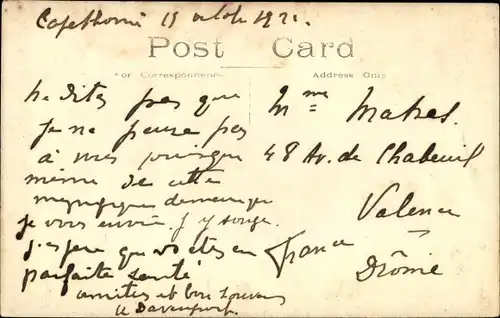 15 octobre 1921.
Post Card
For Correspondence
Address Only
ne dites pas que
je ne pense pas
à vous puisque
même de cette
magnifique demeure
je vous envoie. J'y songe.
j'espère que vs êtes en
parfaite santé
amitiés et bon souvenir
Davenport.
Mme
48 Av. de Chabeuil
Valence
France
Drôme